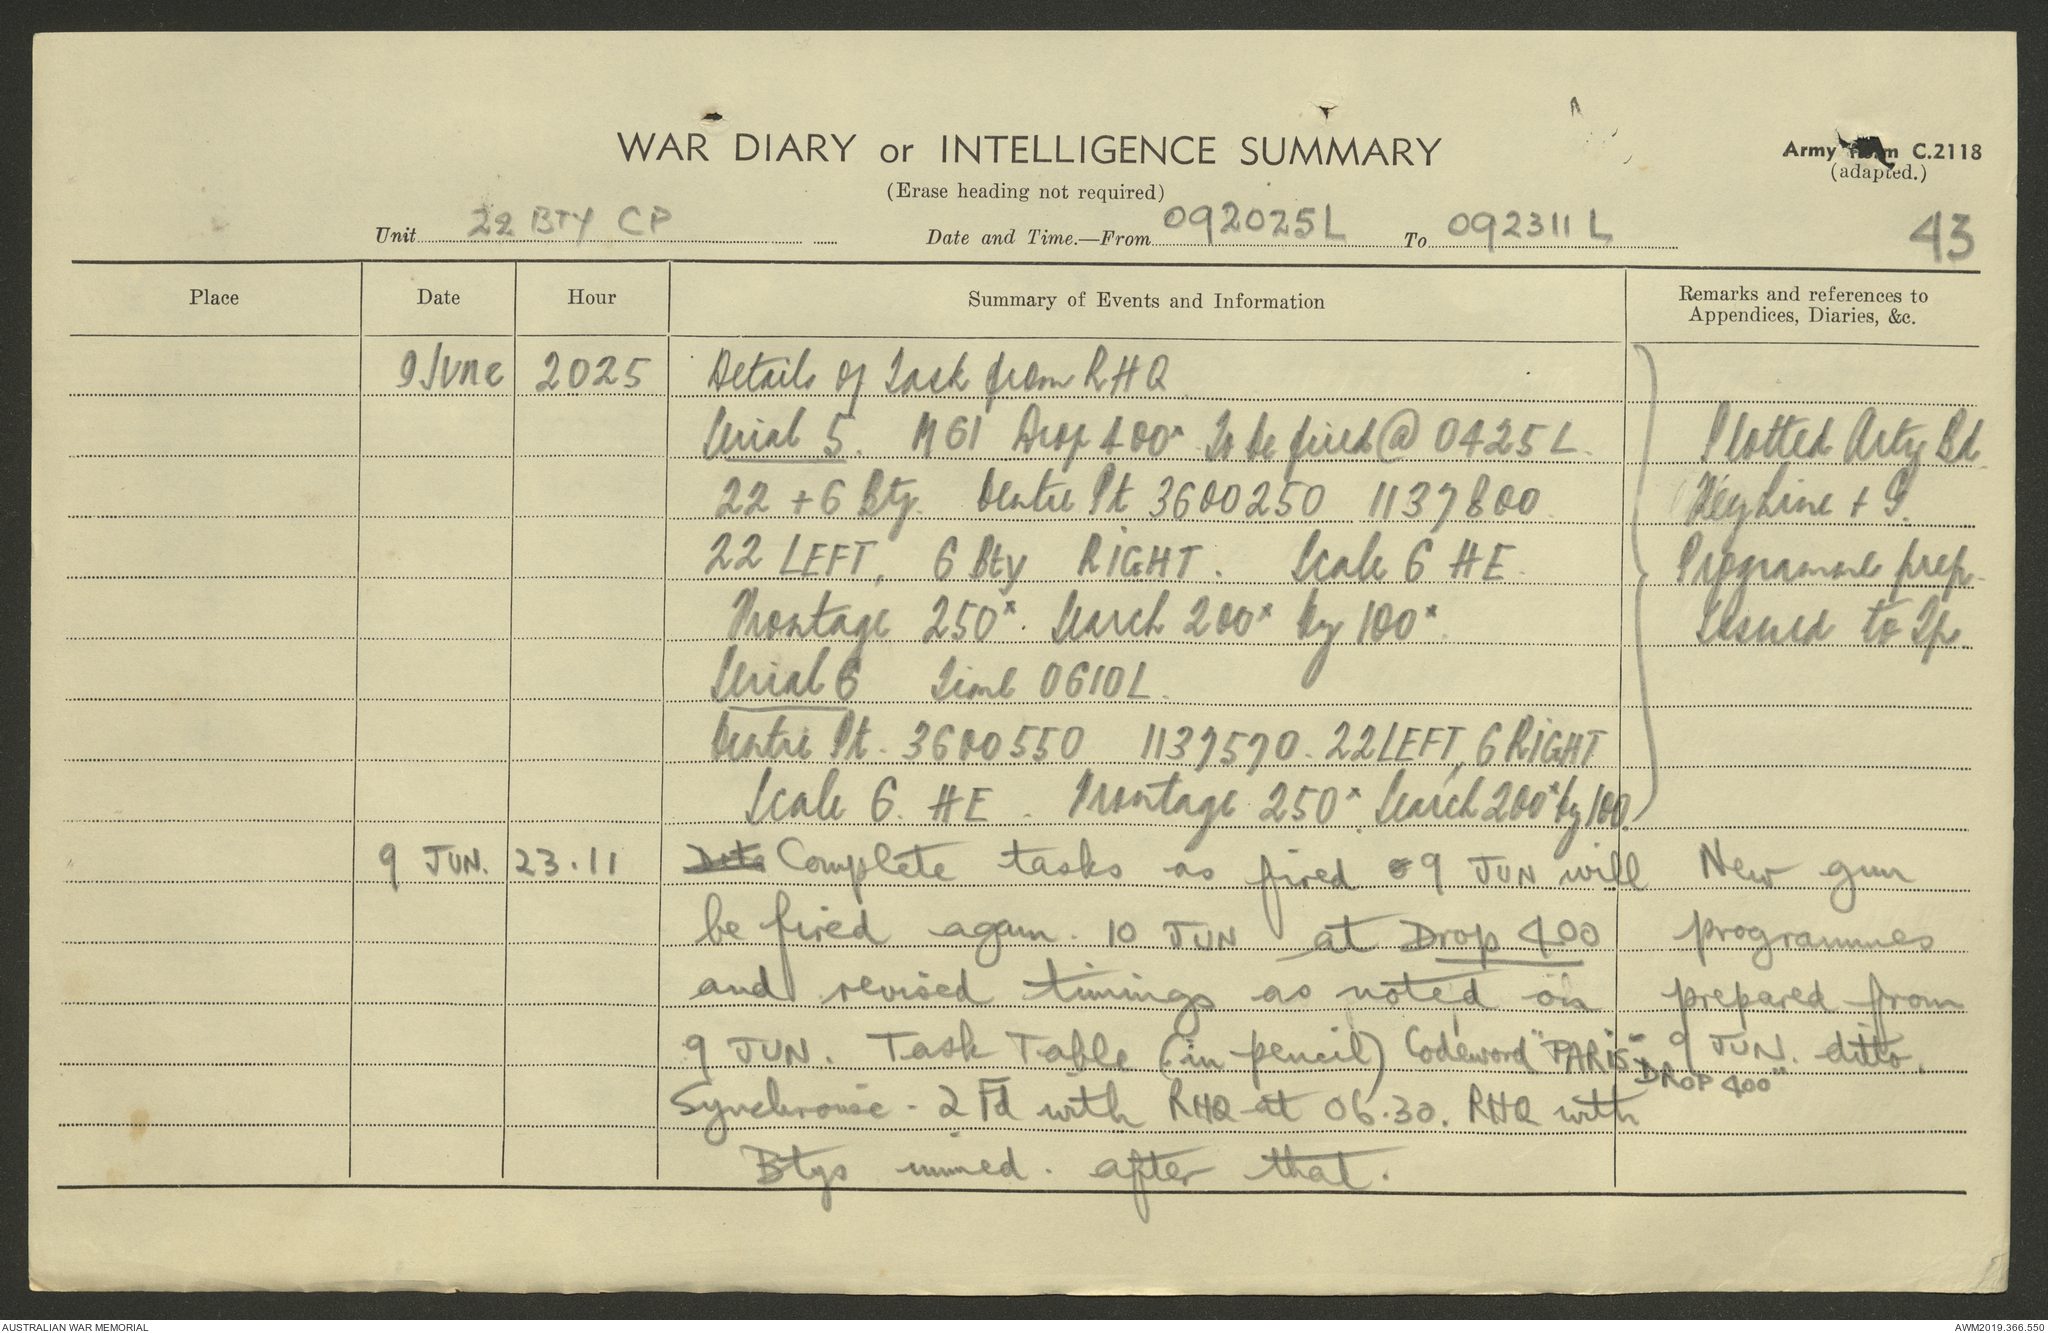 WAR DIARY or INTELLIGENCE SUMMARY
Army Form C.2118
(adapted.)
(Erase heading not required)
43
Unit 22 BTY CP Date and Time.—From 092025L To 092311L
Place Date Hour Summary of Events and Information Remarks and references to Appendices, Diaries, &c.
9 June 2025 Details of Task from RHQ
Serial 5. M61 Drop 400x To be fired @ 0425L. Plotted Arty Bd
22 + 6 Bty. Centre Pt 3600250 1137800 Key Line + G.
22 LEFT, 6 Bty RIGHT. Scale 6 HE. Programme prep.
Frontage 250x. Search 200x by 100x. Issued to Gp.
Serial 6 Time 0610L.
Centre Pt. 3600550 1137570. 22 LEFT, 6 RIGHT
Scale 6. HE. Frontage 250x. Search 200x by 100.
9 JUN. 23.11 Complete tasks as fired 9 JUN will New gun
be fired again. 10 JUN at Drop 400 programmes
and revised timings as noted on prepared from
9 JUN. Task Table (in pencil) Codeword "PARIS- 9 JUN. ditto.
DROP 400"
Synchronise - 2 Fd with RHQ at 06.30. RHQ with
Btys immed. after that.
AUSTRALIAN WAR MEMORIAL
AWM2019.366.550